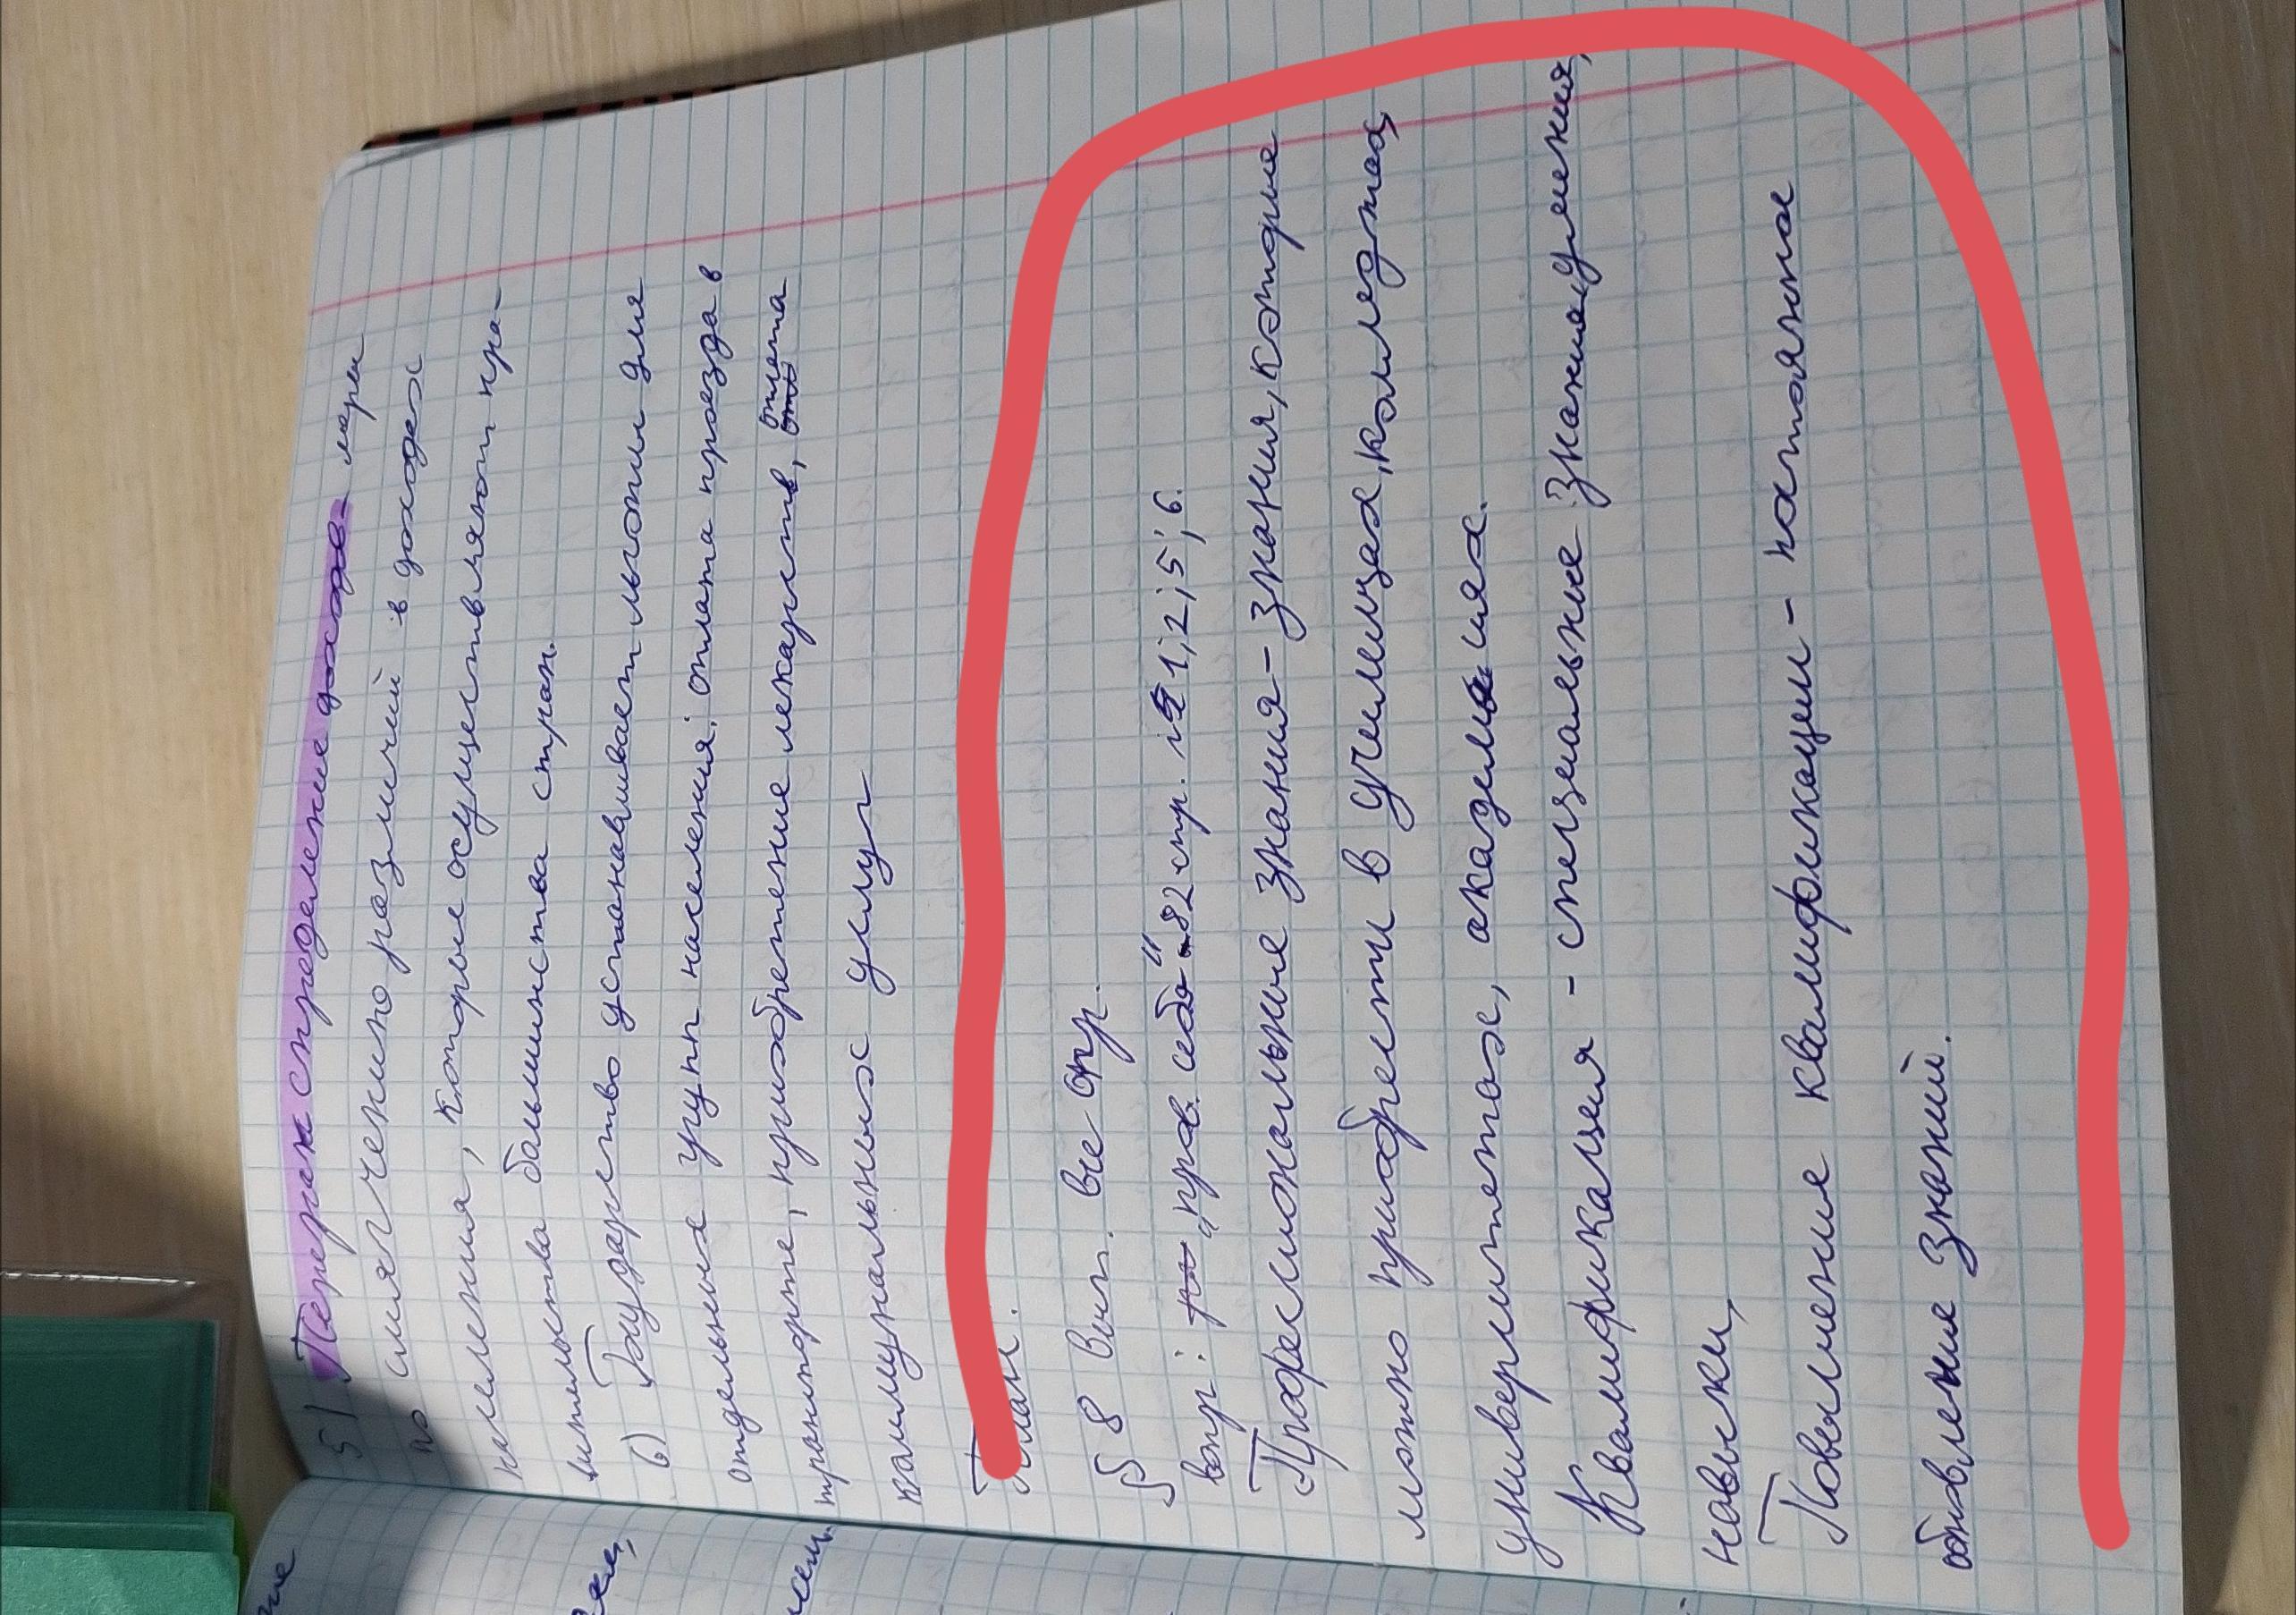 5) Перераспределение доходов - меры
по смягчению различий в доходах
населения, которые осуществляют пра-
вительства большинства стран.
6) Государство устанавливает льготы для
отдельных групп населения: оплата проезда в
транспорте, приобретение лекарств, оплата
коммунальных услуг
§ 8 Вып. все опр.
вопр: "пров. себя" 82 стр. 1; 2; 5; 6.
Профессиональные знания - знания, которые
можно приобрести в училищах, колледжах,
университетах, академиях.
Квалификация - специальные знания, умения,
навыки,
Повышение квалификации - постоянное
обновление знаний.